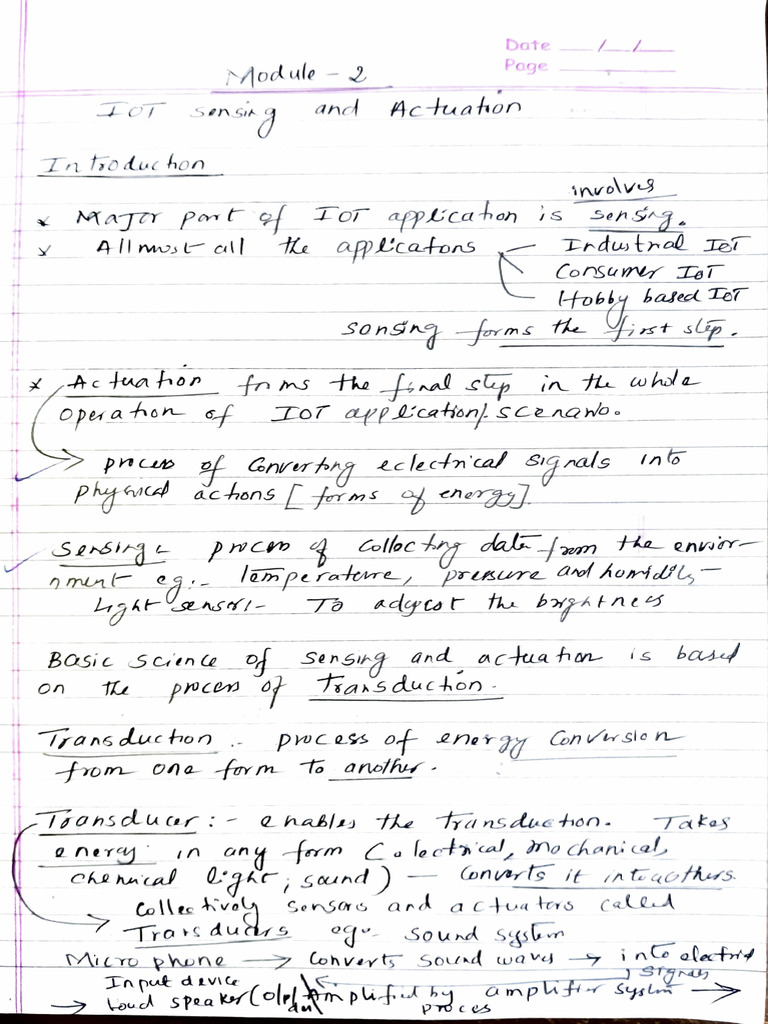 Date __/__/__
Page ______
Module - 2
IOT sensing and Actuation
Introduction
involves
* Major part of IOT application is sensing.
* Allmost all the applicatons — Industrial IoT
Consumer IoT
Hobby based IoT
sensing forms the first step.
* Actuation froms the final step in the whole
operation of IOT application/. scenario.
process of Converting eclectrical signals into
physical actions [forms of energy].
Sensing:- process of collecting data from the envior-
nment eg:- Temperature, pressure and humidity-
Light sensors- To adjust the brightness
Basic science of sensing and actuation is based
on the process of Transduction.
Transduction :- process of energy conversion
from one form to another.
Transducer :- enables the transduction. Takes
energy in any form (electrical, mechanical,
chemical light, sound) — converts it into others.
Collectively sensors and actuators called
Transducers eg:- sound system
Microphone → converts sound waves → into electrid
signals
Input device
→ Loud speaker (O/p Amplified by amplifier system →
proces